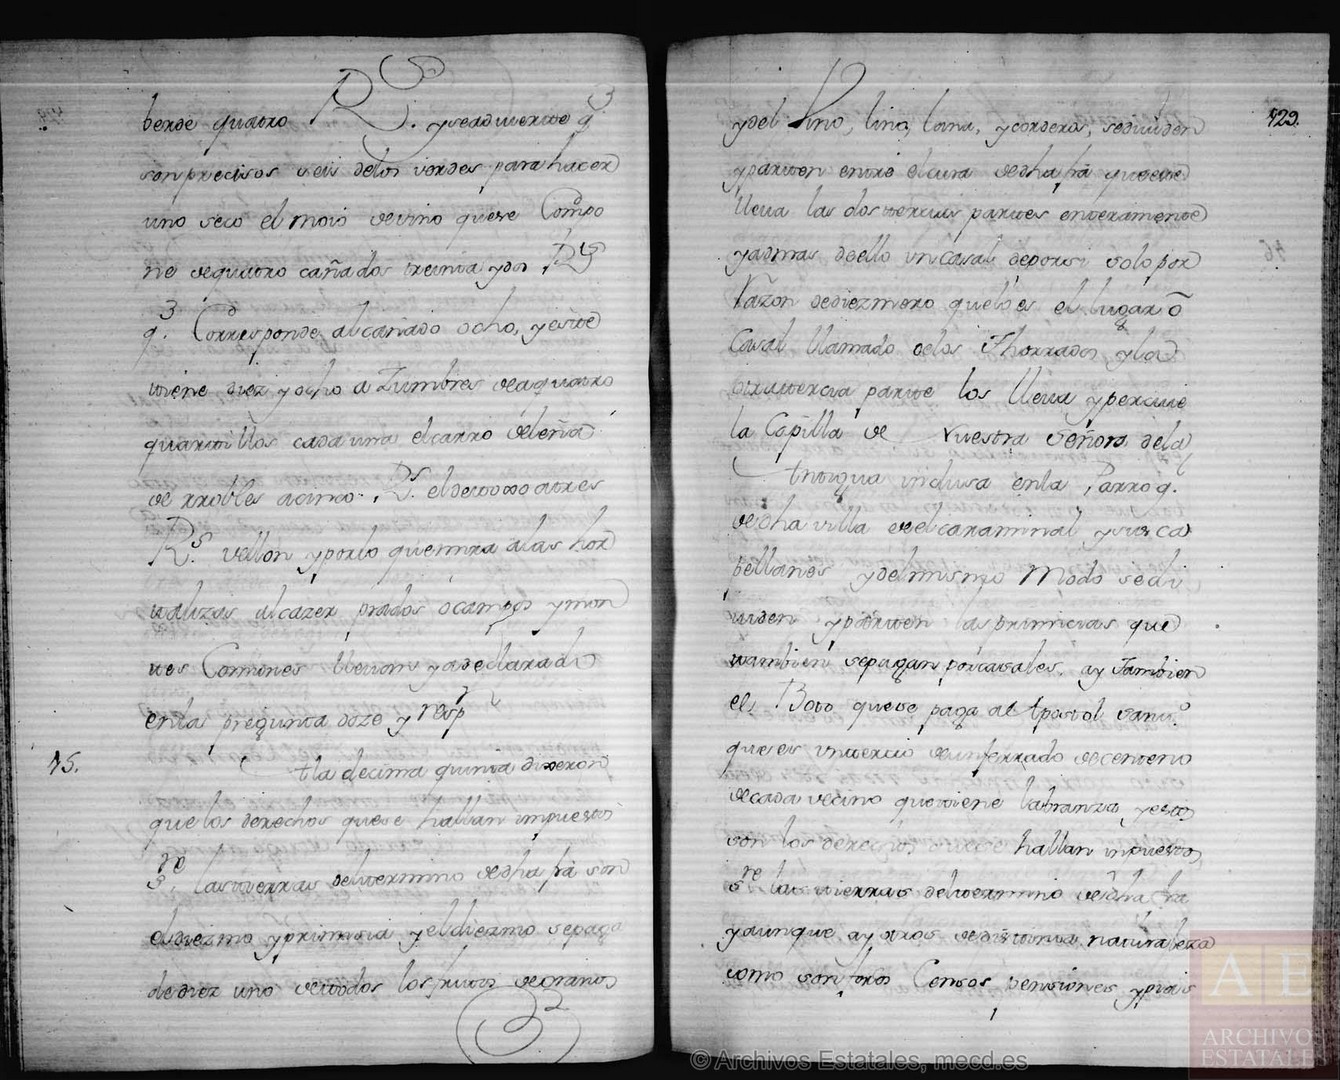 berde quatro Rs. y se advierte q.e
son precisos seis delos verdes para hacer
uno seco el moio de vino que se Compo
ne de quatro cañados treinta y dos Rs
q.e Corresponde al cañado ocho, y este
tiene diez y ocho azumbres de a quatro
quartillos cada una el carro de leña
de rrobles a cinco Rs. el de tojo a tres
Rs. vellon y por lo que mira a las hor
talizas alcazer prados o campos y mon
tes Comunes llevan ya declarado
en las pregunta doze y resp
15. A la decima quinta dixeron
que los derechos que se hallan impuestos
sre. las tierras del termino de dha fra son
el diezmo y primicia y el diezmo se paga
de diez uno de todos los frutos de granos
429.
y del Vino, lino, lana, y corderos, se dividen
y parten entre el cura de dha fra que se
lleva las dos tercias partes enteramente
y ademas de ello un casal de por si solo por
Razon de diezmero que lo es el lugar o
Casal llamado de los y la
otra tercia parte los lleva y percive
la Capilla de Nuestra Señora de la
Antigua inclusa en la Parroq.
de dha villa del caraminal y sus ca
pellanes y del mismo Modo se di
viden y parten las primicias que
tambien se pagan por casales, ay tambien
el Boto que se paga al Apostol Santo.
que es un tercio de un ferrado de centeno
de cada vecino que tiene labranza y estos
son los derechos que se hallan impuestos
sre las tierras del termino de dha fra
y aunque ay otros de distinta naturaleza
como son foros Censos pensiones y pias
© Archivos Estatales, mecd.es
AE
ARCHIVOS
ESTATALES